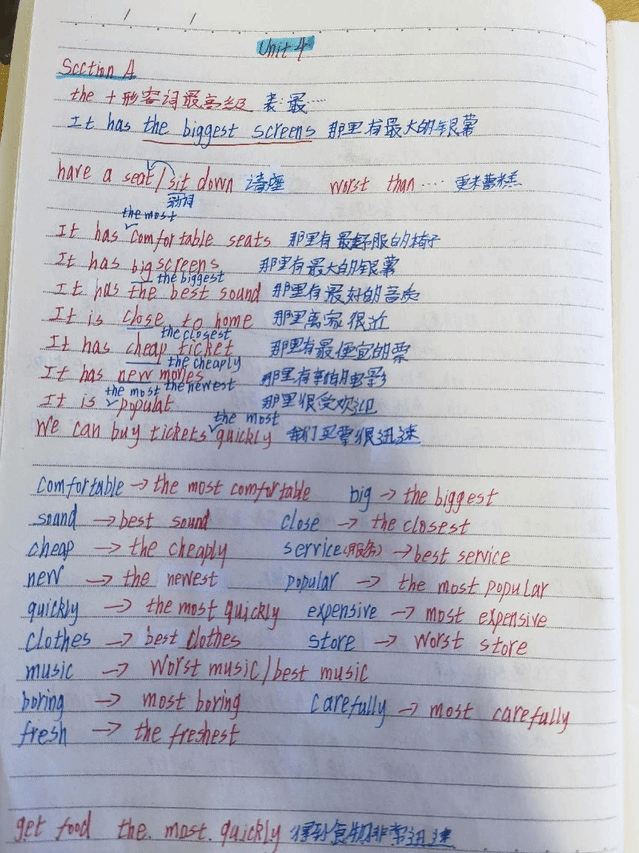 Unit 4
Section A
the + 形容词最高级 表:最……
It has the biggest screens 那里有最大的银幕
have a seat/sit down 请座 worst than…… 更糟糕
动词
the most
It has comfortable seats 那里有最舒服的椅子
It has big screens 那里有最大的银幕
the biggest
It has the best sound 那里有最好的音质
It is close to home 那里离家很近
the closest
It has cheap ticket 那里有最便宜的票
the cheaply
It has new movies 那里有新的电影
the most the newest
It is popular 那里很受欢迎
the most
We can buy tickets quickly 我们买票很迅速
comfortable → the most comfortable big → the biggest
sound → best sound close → the closest
cheap → the cheaply service(服务) → best service
new → the newest popular → the most popular
quickly → the most quickly expensive → most expensive
clothes → best clothes store → worst store
music → worst music/best music
boring → most boring carefully → most carefully
fresh → the freshest
get food the most quickly 得到食物非常迅速